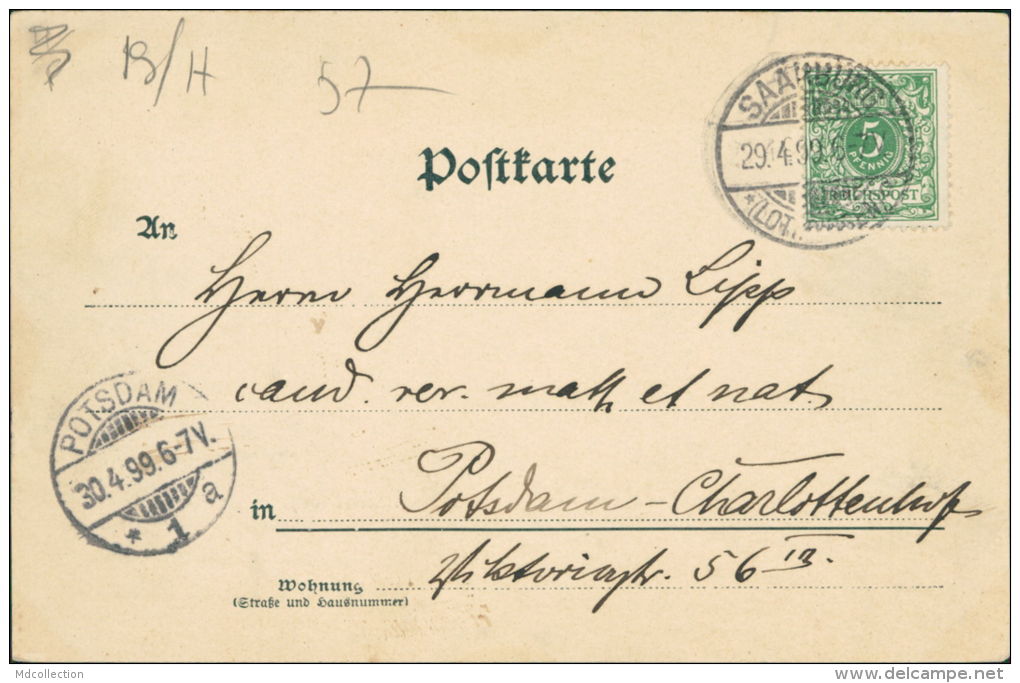 B/H
57
SAARBURG
29.4.99.6-7
*(LOT
5
PFENNIG
REICHSPOST
Postkarte
An
Herrn Herrmann Lipp
cand. rer. math et nat.
POTSDAM
30.4.99.6-7V.
* 1 a
in Potsdam-Charlottenhof
Viktoriastr. 56 III.
Wohnung
(Straße und Hausnummer)
Mdcollection
www.delcampe.net